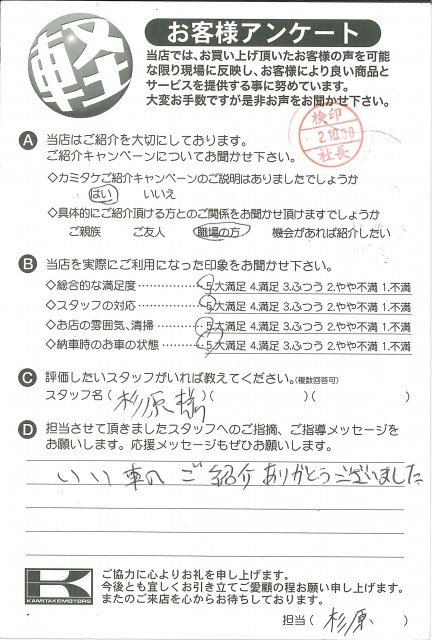 軽
お客様アンケート
当店では、お買い上げ頂いたお客様の声を可能
な限り現場に反映し、お客様により良い商品と
サービスを提供する事に努めています。
大変お手数ですが是非お声をお聞かせ下さい。
検印
2.10.30
社長
A 当店はご紹介を大切にしております。
ご紹介キャンペーンについてお聞かせ下さい。
◇カミタケご紹介キャンペーンのご説明はありましたでしょうか
はい いいえ
◇具体的にご紹介頂ける方とのご関係をお聞かせ頂けますでしょうか
ご親族 ご友人 職場の方 機会があれば紹介したい
B 当店を実際にご利用になった印象をお聞かせ下さい。
◇総合的な満足度……………5.大満足 4.満足 3.ふつう 2.やや不満 1.不満
◇スタッフの対応……………5.大満足 4.満足 3.ふつう 2.やや不満 1.不満
◇お店の雰囲気、清掃………5.大満足 4.満足 3.ふつう 2.やや不満 1.不満
◇納車時のお車の状態………5.大満足 4.満足 3.ふつう 2.やや不満 1.不満
C 評価したいスタッフがいれば教えてください。(複数回答可)
スタッフ名( 杉原様 )( )( )
D 担当させて頂きましたスタッフへのご指摘、ご指導メッセージを
お願いします。応援メッセージもぜひお願いします。
いい車のご紹介ありがとうございました
K
KAMITAKEMOTORS
ご協力に心よりお礼を申し上げます。
今後とも宜しくお引き立てご愛顧の程お願い申し上げます。
またのご来店を心からお待ちしております。
担当( 杉原 )